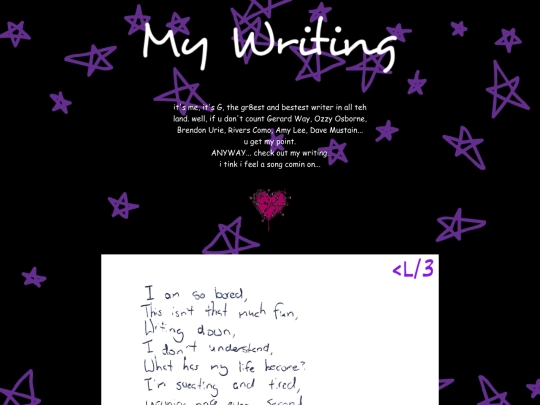 My Writing
it's me, it's G, the gr8est and bestest writer in all teh
land. well, if u don't count Gerard Way, Ozzy Osborne,
Brendon Urie, Rivers Como, Amy Lee, Dave Mustain...
u get my point.
ANYWAY... check out my writing
i tink i feel a song comin on...
<L/3
I am so bored,
This isn't that much fun,
Writing down,
I don't understand,
What has my life become?
I'm sweating and tired,
every second